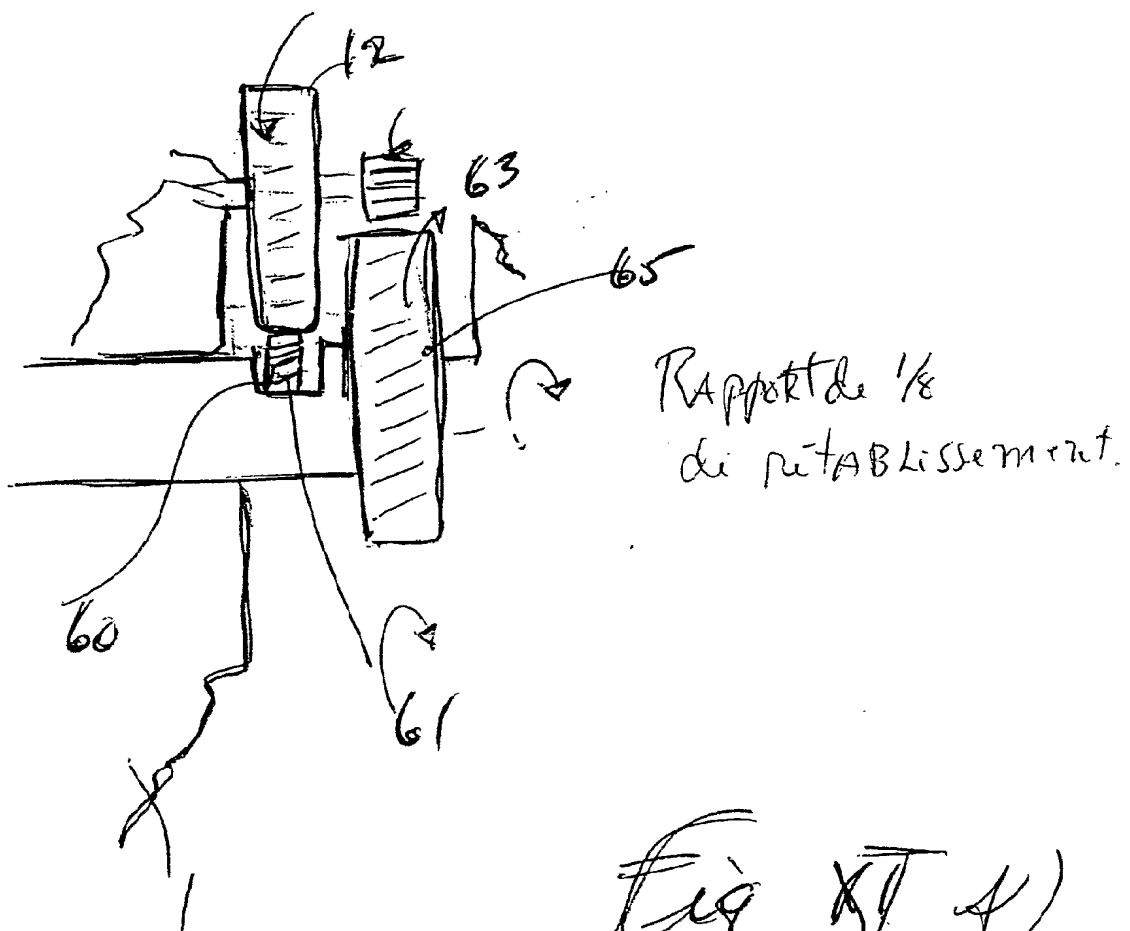 12
63
65
Rapport de 1/8
de rétablissement.
60
61
1
Fig XI